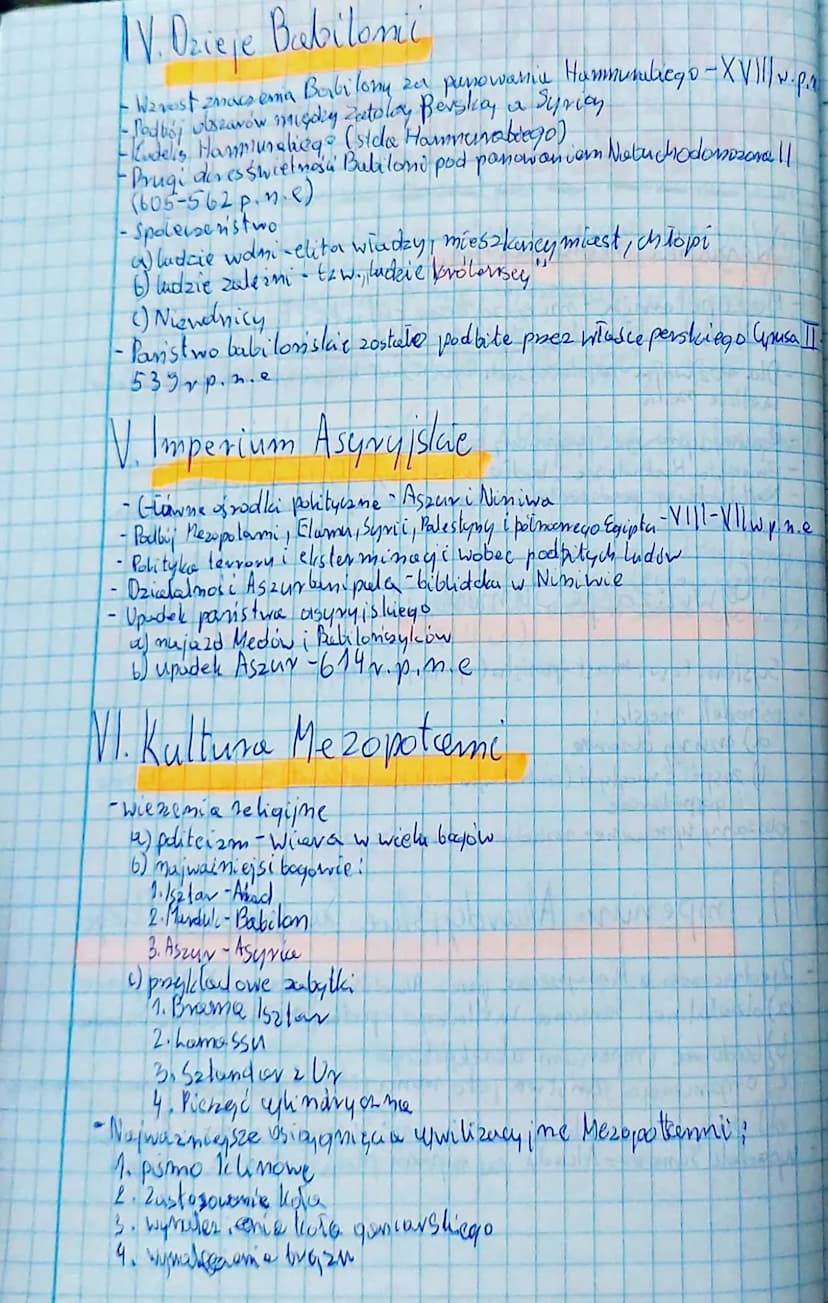 IV. Dzieje Babilonii
- Wzrost znaczenia Babilonu za panowania Hammurabiego - XVIII w. p.n
- Podbój obszarów między Zatoką Perską a Syrią
- Kodeks Hammurabiego (stela Hammurabiego)
- Drugi okres świetności Babilonii pod panowaniem Nabuchodonozora II
(605-562 p.n.e)
- Społeczeństwo
a) ludzie wolni - elita władzy, mieszkańcy miast, chłopi
b) ludzie zależni - tzw. „ludzie królewscy"
c) Niewolnicy
- Państwo babilońskie zostało podbite przez władcę perskiego Cyrusa II
539 r p.n.e
V. Imperium Asyryjskie
- Główne ośrodki polityczne - Aszur i Niniwa
- Podbój Mezopotami, Elamu, Syrii, Palestyny i północnego Egiptu - VIII-VII w p.n.e
- Polityka terroru i eksterminacji wobec podbitych ludów
- Działalność Aszurbanipala - biblioteka w Niniwie
- Upadek państwa asyryjskiego
a) najazd Medów i Babilończyków
b) upadek Aszur - 614 r. p.n.e
VI. Kultura Mezopotami
- wierzenia religijne
a) politeizm - wiara w wielu bogów
b) najważniejsi bogowie:
1. Isztar - Akad
2. Marduk - Babilon
3. Aszur - Asyria
c) przykładowe zabytki
1. Brama Isztar
2. Lamassu
3. Sztandar z Ur
4. Pieczęć cylindryczna
- Najważniejsze osiągnięcia cywilizacyjne Mezopotamii:
1. pismo klinowe
2. Zastosowanie koła
3. wynalezienie koła garncarskiego
4. wynalezienie brązu